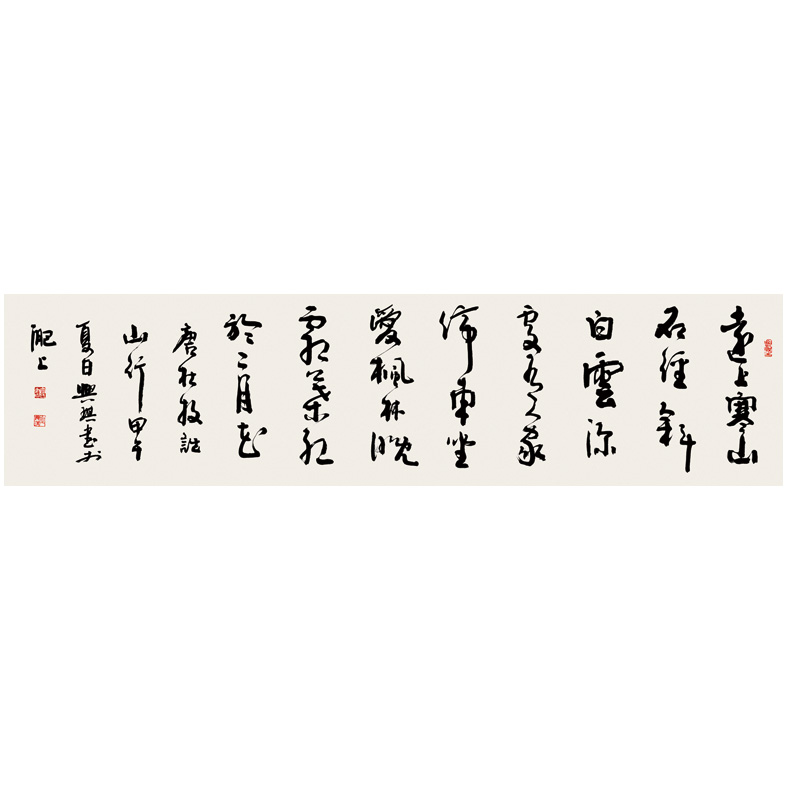 遠上寒山
石徑斜
白雲深
處有人家
停車坐
愛楓林晚
霜葉紅
於二月花
唐杜牧詩
山行甲午
夏日興祺書於
淝上